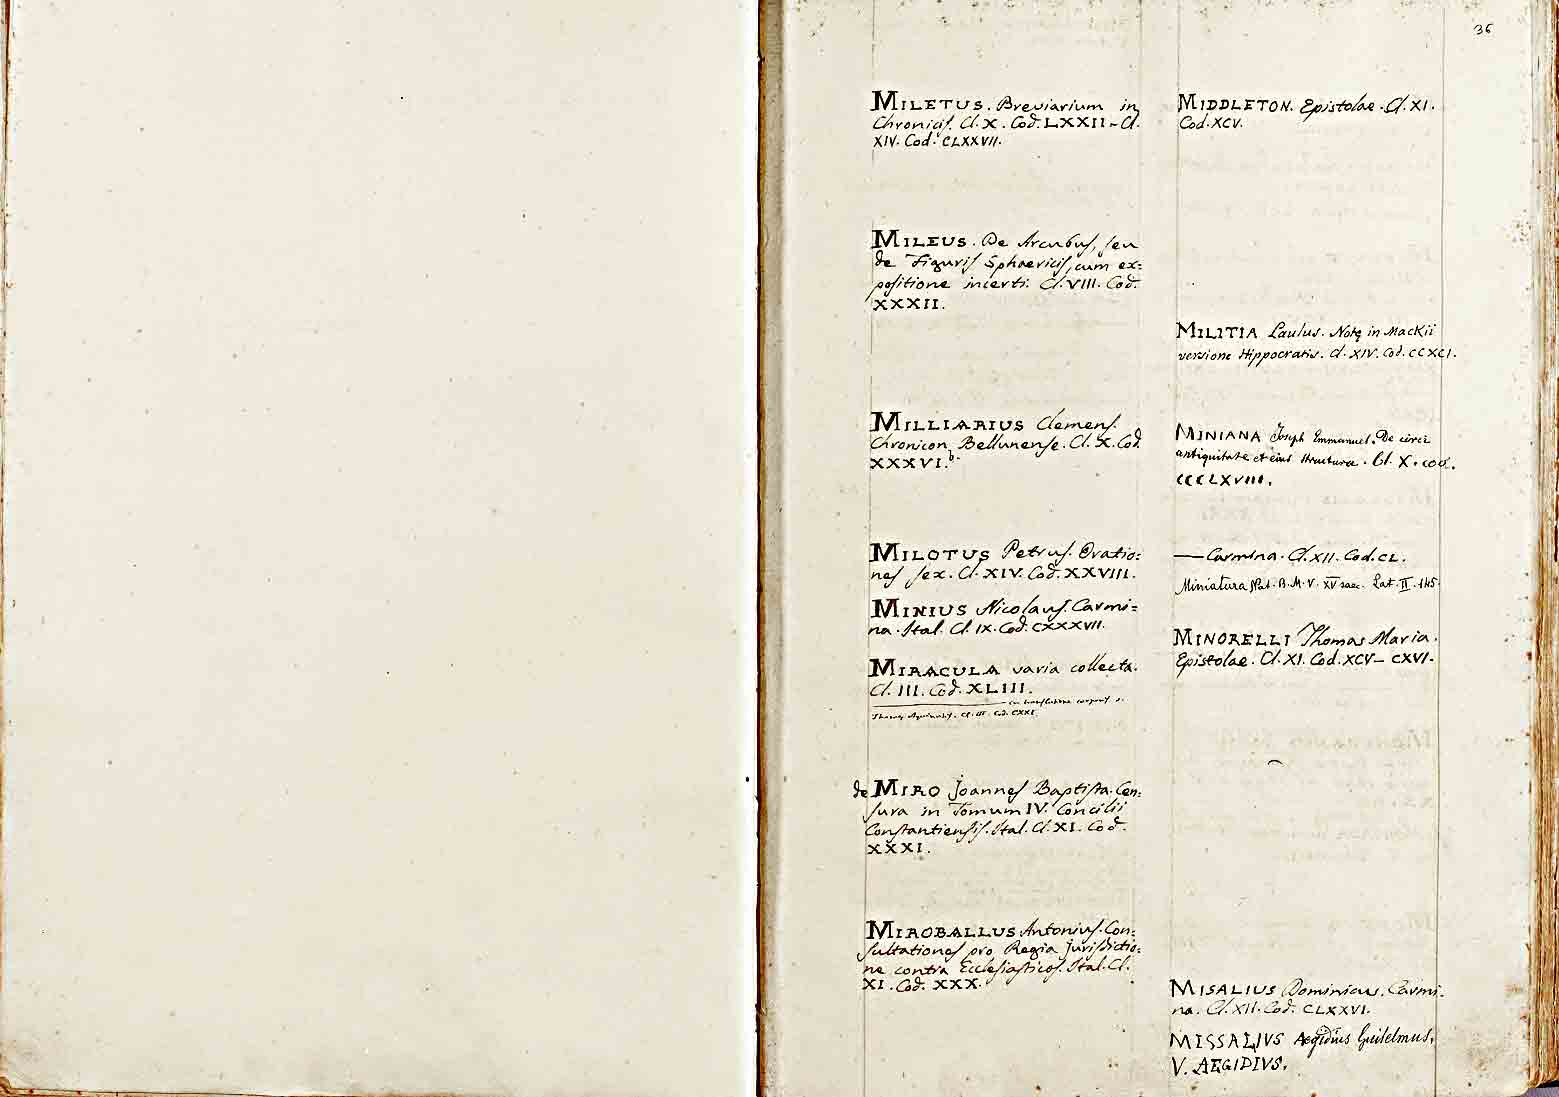 36
MILETUS. Breviarium in
Chronicis. Cl. X. Cod. LXXII - Cl.
XIV. Cod. CLXXVII.
MILEUS. De Arcubus, seu
de Figuris Sphaericis, cum ex=
positione incerti. Cl. VIII. Cod.
XXXII.
MILLIARIUS Clemens.
Chronicon Bellunense. Cl. X. Cod.
XXXVI.b.
MILOTUS Petrus. Oratio=
nes sex. Cl. XIV. Cod. XXVIII.
MINIUS Nicolaus. Carmi=
na. Ital. Cl. IX. Cod. CXXXVII.
MIRACULA varia collecta.
Cl. III. Cod. XLIII.
cum translatione corporis s.
Thomae Aquinatis. Cl. III. Cod. CXXI.
de MIRO Joannes Baptista. Cen=
sura in Tomum IV. Concilii
Constantiensis. Ital. Cl. XI. Cod.
XXXI.
MIROBALLUS Antonius. Con=
sultationes pro Regia jurisdictio=
ne contra Ecclesiasticos. Ital. Cl.
XI. Cod. XXX.
MIDDLETON. Epistolae. Cl. XI.
Cod. XCV.
MILITIA Laulus. Notę in Mackii
versione Hippocratis. Cl. XIV. Cod. CCXCI.
MINIANA Joseph Emmanuel. De circi
antiquitate et eius structura. Cl. X. cod.
CCCLXVIII.
— Carmina. Cl. XII. Cod. CL.
Miniatura Nat. B. M. V. XV saec. Lat. II. 115
MINORELLI Thomas Maria.
Epistolae. Cl. XI. Cod. XCV - CXVI.
MISALIUS Dominicus. Carmi=
na. Cl. XII. Cod. CLXXVI.
MISSALIVS Aegidius Guilelmus,
V. AEGIDIVS.